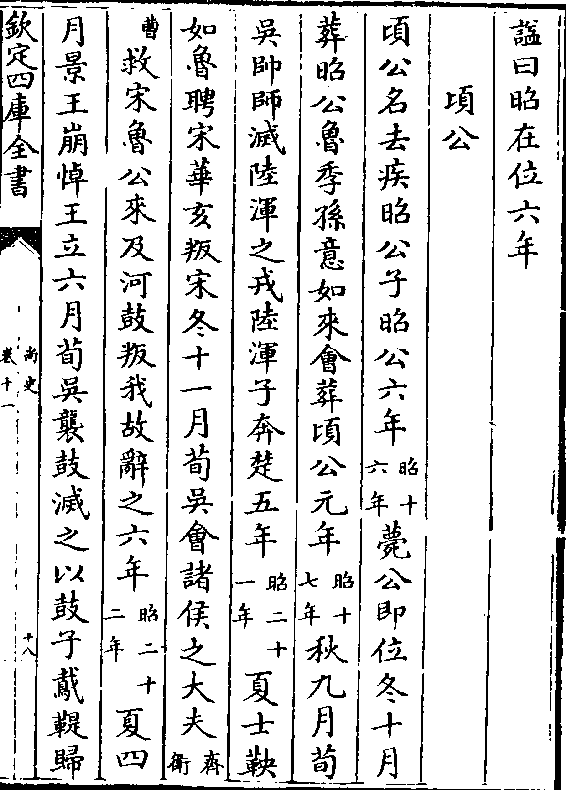 諡曰昭在位六年
頃公
頃公名去疾昭公子昭公六年昭十六年薨公即位冬十月
葬昭公魯季孫意如來會葬頃公元年昭十七年秋九月荀
吳帥師滅陸渾之戎陸渾子奔楚五年昭二十一年夏士鞅
如魯聘宋華亥叛宋冬十一月荀吳會諸侯之大夫齊衛
曹救宋魯公來及河鼓叛我故辭之六年昭二十二年夏四
月景王崩悼王立六月荀吳襲鼓滅之以鼓子䳒鞮歸
欽定四庫全書
尚史
卷十一
十八